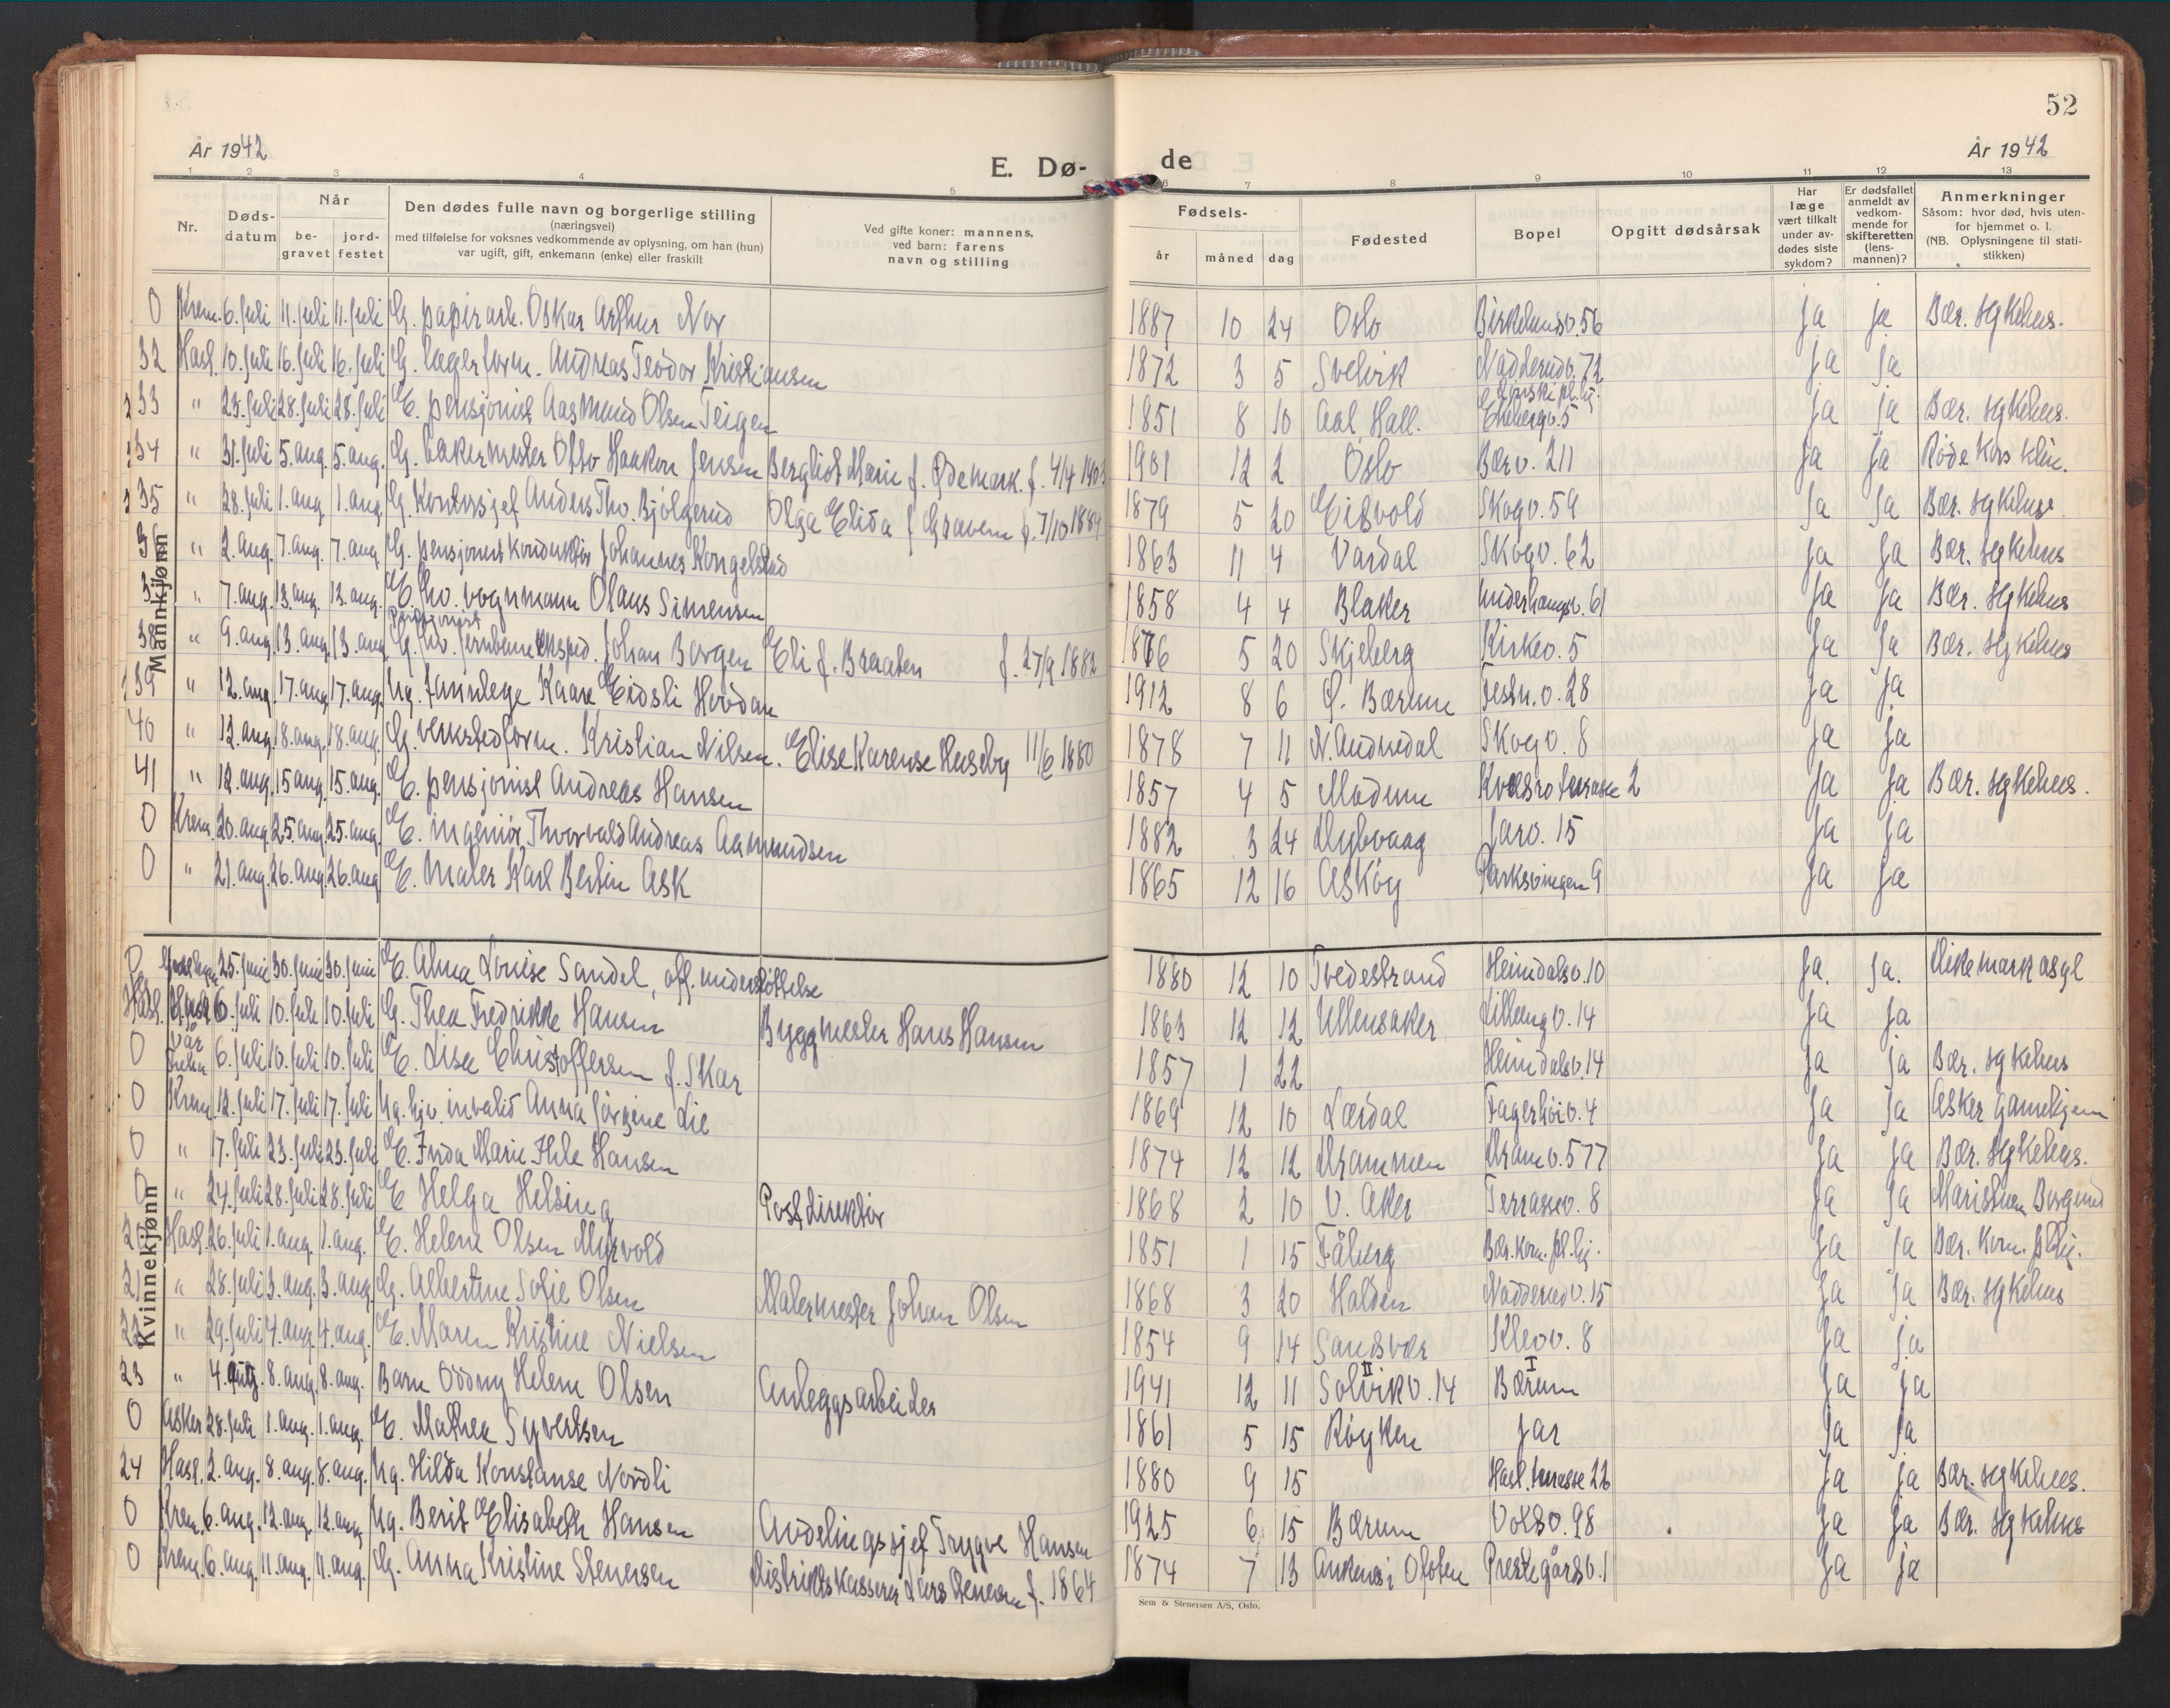 52
År 1942
E. Dø-
de
År 1942
1 2 3 4 5 6 7 8 9 10 11 12 13
Nr.
Døds-
datum
Når
be-
gravet
jord-
festet
Den dødes fulle navn og borgerlige stilling
(næringsvei)
med tilføielse for voksnes vedkommende av oplysning, om han (hun)
var ugift, gift, enkemann (enke) eller fraskilt
Ved gifte koner: mannens,
ved barn: farens
navn og stilling
Fødsels-
år måned dag
Fødested
Bopel
Opgitt dødsårsak
Har
læge
vært tilkalt
under av-
dødes siste
sykdom?
Er dødsfallet
anmeldt av
vedkom-
mende for
skifteretten
(lens-
mannen)?
Anmerkninger
Såsom: hvor død, hvis uten-
for hjemmet o. l.
(NB. Oplysningene til stati-
stikken)
Mannkjønn
0 Krem. 6. juli 11. juli 11. juli G. papirarb. Oskar Arthur Nor 1887 10 24 Oslo Birkelundv. 56 ja ja Bær. sykehus.
32 Hasl. 10. juli 16. juli 16. juli G. lagerform. Andreas Teodor Kristiansen 1872 3 5 Svelvik Nadderudv. 72 ja ja
33 " 25. juli 28. juli 28. juli E. pensjonist Aasmund Olsen Teigen 1851 8 10 Aal Hall. Enebergv. 5 ja ja Bær. sykehus.
34 " 31. juli 5. aug. 5. aug. G. bakermester Otto Haakon Jensen Bergliot Marie f. Ødemark. f. 4/4 1903 1901 12 2 Oslo Bærv. 211 ja ja Røde Kors klin.
35 " 28. juli 1. aug. 1. aug. G. Kontorsjef Anders Tho. Bjølgerud Olga Elida f Graven f. 7/10 1884 1879 5 20 Eidsvold Skogv. 59 ja ja Bær. sykehus.
" 2. aug. 7. aug. 7. aug. G. pensjonert konduktør Johannes Kongelstad 1863 11 4 Vardal Skogv. 62 ja ja Bær. sykehus
" 7. aug. 13. aug. 13. aug. E. fhv. vognmann Olaus Simensen 1858 4 4 Blaker Underhaugsv. 61 ja ja Bær. sykehus
pensjonist
38 " 9. aug. 13. aug. 13. aug. G. fhv. jernbaneeksped. Johan Borgen Eli f. Braaten f. 27/9 1882 1876 5 20 Skjeberg Kirkev. 5 ja ja Bær. sykehus
39 " 12. aug. 17. aug. 17. aug. Ug. tannlege Kaare Eidsli Hovdan 1912 8 6 Ø. Bærum Festn.v. 28 ja ja
40 " 12. aug. 18. aug. 18. aug. G. verkstedform. Kristian Nilsen. Elise Karense Huseby 11/6 1880 1878 7 11 N. Audnedal Skogv. 8 ja ja
41 " 12. aug. 15. aug. 15. aug. E. pensjonist Andreas Hansen 1857 4 5 Modum terasse 2 ja ja Bær. sykehus.
0 Krem. 20. aug. 25. aug. 25. aug. E. ingeniør Thorvald Andreas Aamundsen 1882 3 24 Dybvaag Jarv. 15 ja ja
0 " 21. aug. 26. aug. 26. aug. E. maler Karl Bertin Ask 1865 12 16 Askøy Parksvingen 9 ja ja
Kvinnekjønn
0 25. juni 30. juni 30. juni E. Alma Louise Sandel, off. understøttelse 1880 12 10 Tvedestrand Heimdalsv. 10 ja. ja. Dikemark asyl
Hasl. 6. juli 10. juli 10. juli G. Thea Fredrikke Hansen Byggmester Hans Hansen 1863 12 12 Ullensaker Lillengv. 14 ja ja
0 Vår Frelser 6. juli 10. juli 10. juli E. Lise Christoffersen f. Skar 1857 1 22 Heimdalsv. 14 ja ja Bær. sykehus
0 Krem. 12. juli 17. juli 17. juli Ug. hjv. invalid Anna Jørgine Lie 1869 12 10 Lærdal Fagerhöiv. 4 ja ja Asker gamlehjem
0 " 17. juli 23. juli 23. juli E. Frida Marie Ihle Hansen 1874 12 12 Drammen Dramv. 577 ja ja Bær. sykehus.
0 " 24. juli 28. juli 28. juli E Helga Helsing Postdirektør 1868 2 10 V. Aker Terrassev. 8 ja ja Maristuen Borgund
20 Hasl. 26. juli 1. aug. 1. aug. E. Helene Olsen Myrvold 1851 1 15 Fåberg Bær. kom. pl. hj. ja ja Bær. Kom. pl.hj.
21 " 28. juli 3. aug. 3. aug. G. Albertine Sofie Olsen Malermester Johan Olsen 1868 3 20 Halden Nadderudv. 15 ja ja Bær. sykehus
22 " 29. juli 4. aug. 4. aug. E. Maren Kristine Nielsen 1854 9 14 Sandsvær Kleivv. 8 ja ja
23 " 4. aug. 8. aug. 8. aug. Barn Oddny Helene Olsen Anleggsarbeider 1941 12 11 II Solvikv. 14 I Bærum ja ja
0 Asker 28. juli 1. aug. 1. aug. E. Mathea Syvertsen 1861 5 15 Røyken Jar ja ja
24 Hasl. 2. aug. 8. aug. 8. aug. Ug. Hilda Konstanse Nordli 1880 9 15 Hasl. terasse 22 ja ja Bær. sykehus.
0 Krem. 6. aug. 12. aug. 12. aug. Ug. Berit Elisabeth Hansen Avdelingssjef Trygve Hansen 1925 6 15 Bærum Vollsv. 98 ja ja Bær. sykehus
0 Krem. 6. aug. 11. aug. 11. aug. G. Anna Kristine Stenersen Distriktskasserer Lars Stenersen f. 1864 1874 7 13 Ankenes i Ofoten Prestegårdsv. 1 ja ja
Sem & Stenersen A/S, Oslo.